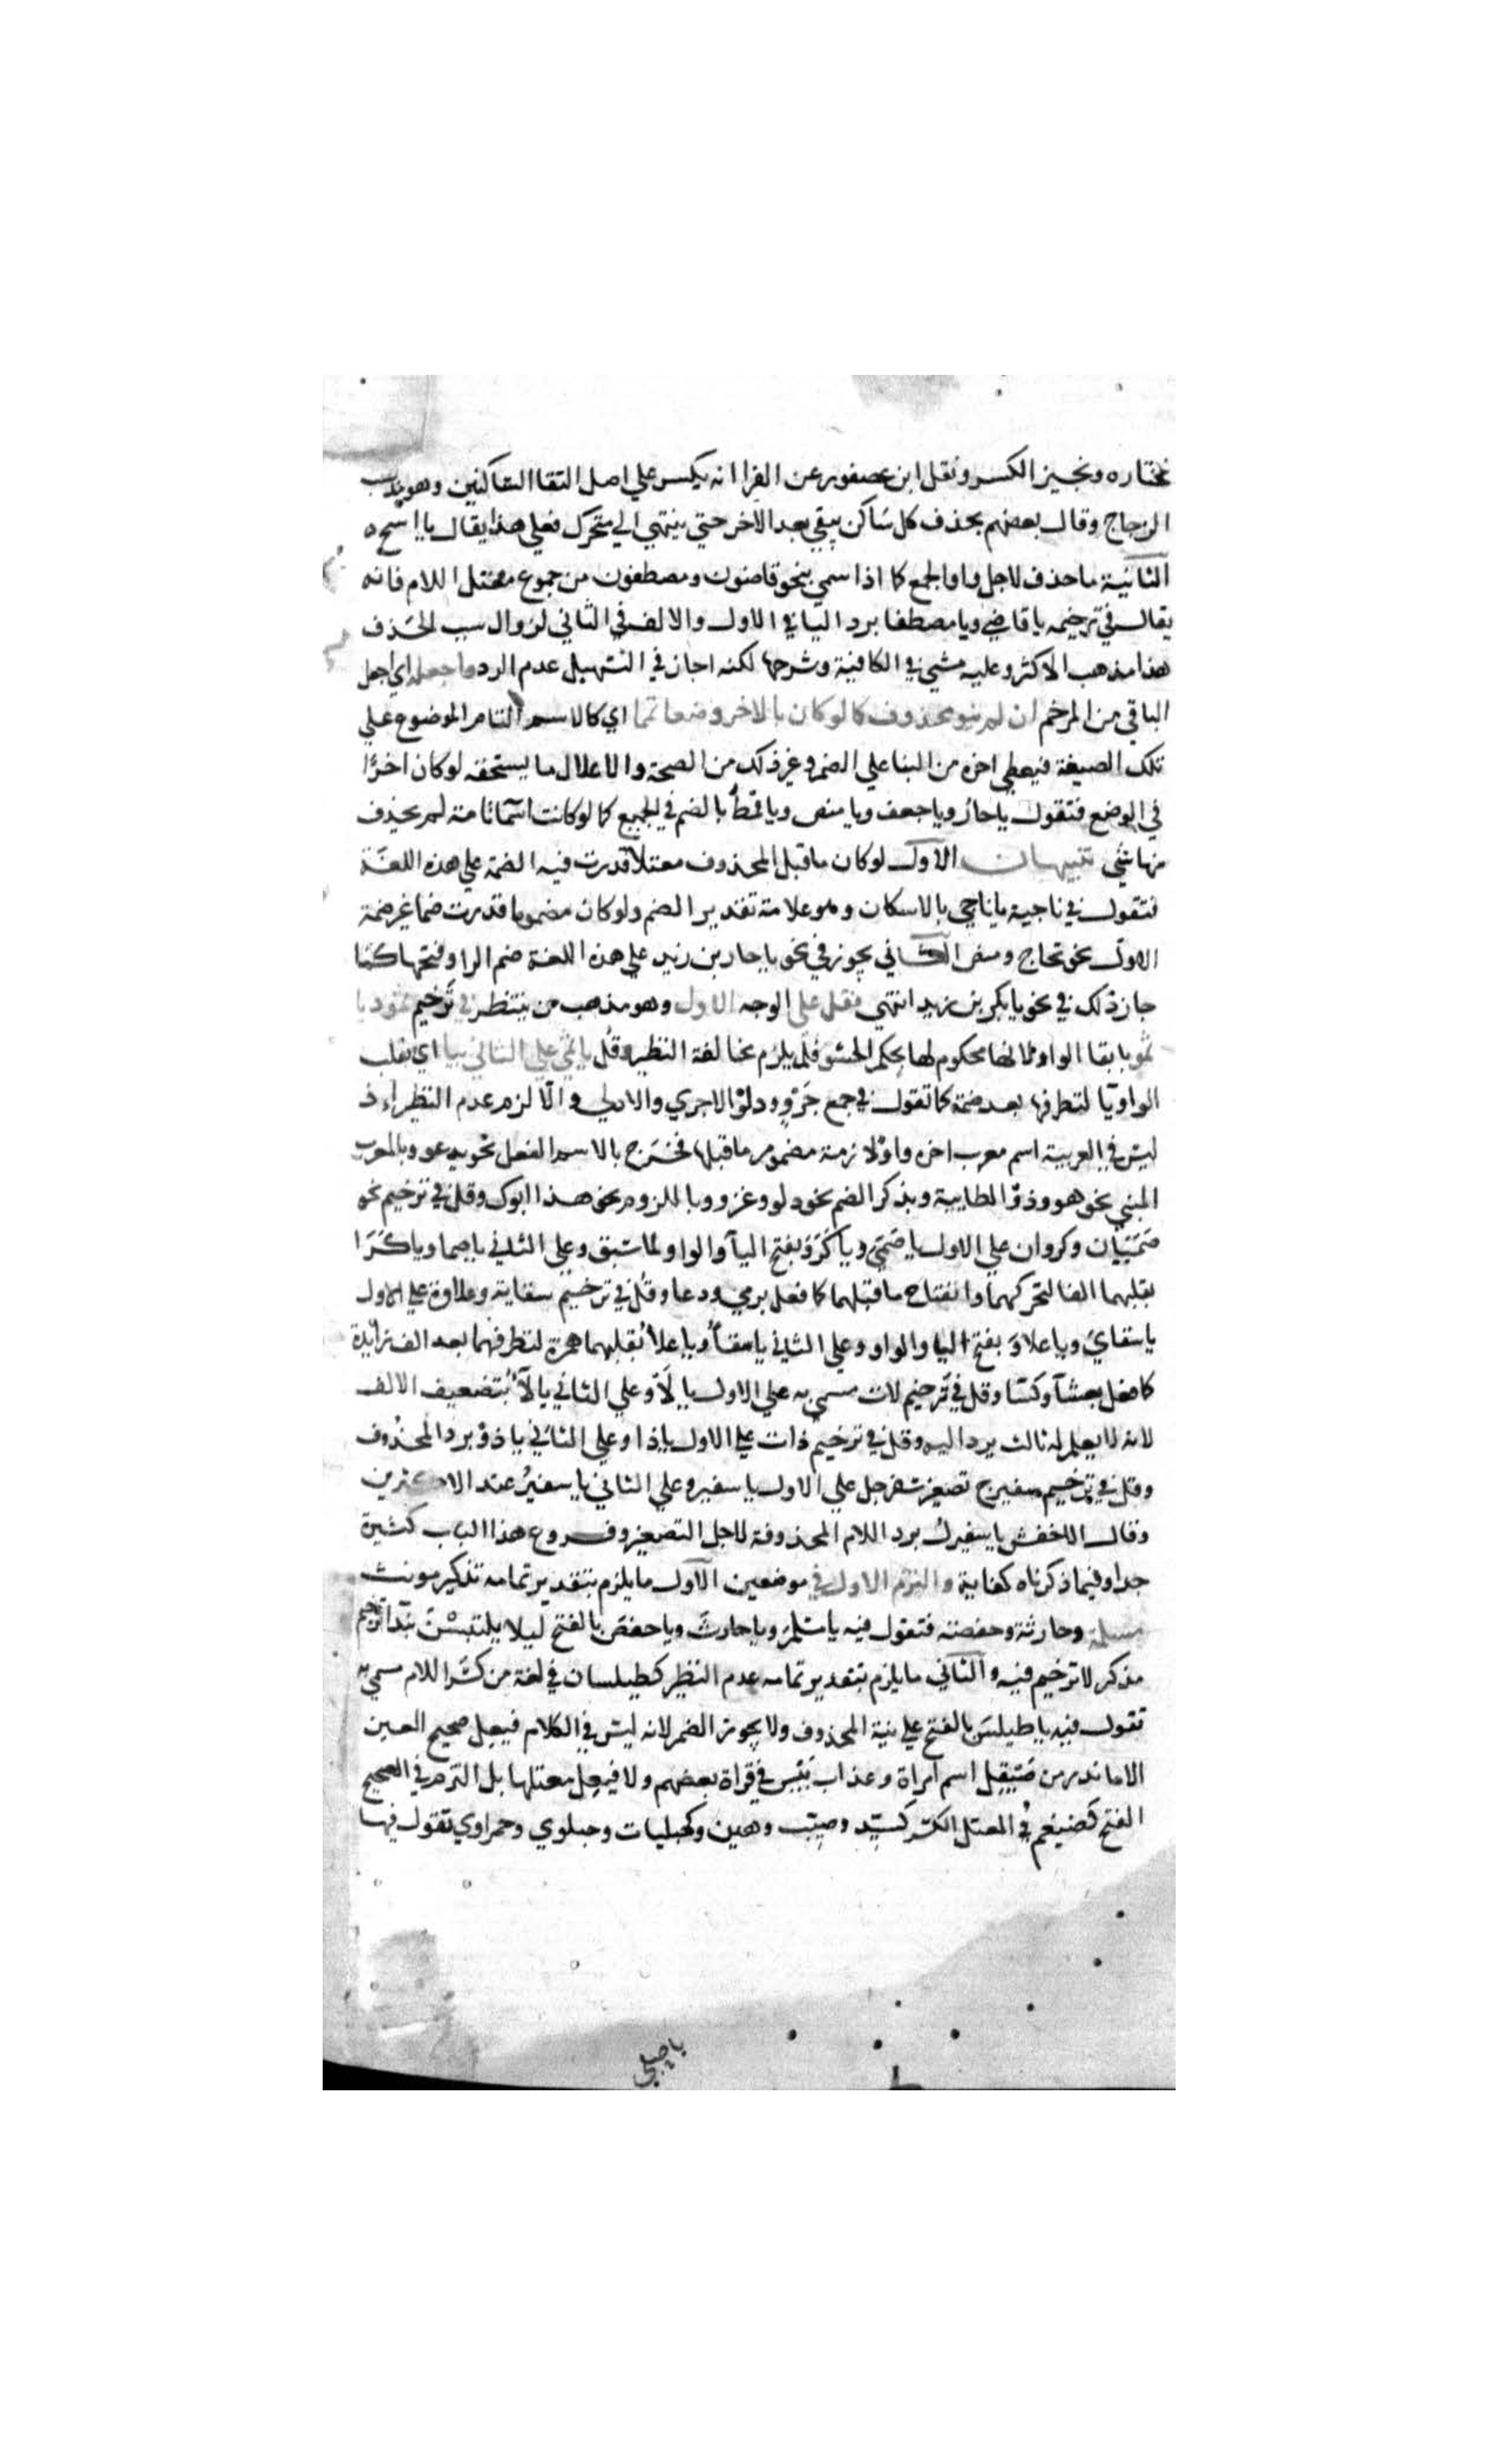 نختاره ونجيز الكسر ونقل ابن عصفور عن الفرا انه يكسر علي اصل التقا الساكنين وهو مذهب
الزجاج وقال بعضهم بحذف كل ساكن يبقي بعد الاخر حتي ينتهي الي متحرك فعلي هذا يقال يا اسح ه
الثانية ما حذف لاجل واو الجمع كما اذا سمي بنحو قاضون ومصطفون من جموع معتل اللام فانه
يقال في ترخيمه يا قاضي ويا مصطفا برد اليا في الاول والالف في الثاني لزوال سبب الحذف
هذا مذهب الاكثر وعليه مشي في الكافية وشرحها لكنه اجاز في التسهيل عدم الرد واجعله اي اجعل
الباقي من المرخم ان لم ينو محذوف كما لو كان بالاخر وضعا تمما اي كالاسم التام الموضوع علي
تلك الصيغة فيعطي اخره من البنا علي الضم وغير ذلك من الصحة والاعلال ما يستحقه لو كان اخرًا
في الوضع فتقول يا حارُ ويا جعف ويا منص ويا قمطُ بالضم في الجميع كما لو كانت اسمآ تامة لم يحذف
منها شي تنبيهات الاول لو كان ما قبل المحذوف معتلا قدرت فيه الضمة علي هذه اللغة
فتقول في ناجية يا ناجي بالاسكان وهو علامة تقدير الضم ولو كان مضموما قدرت ضما غير ضمة
الاول نحو تحاج ومنص الثاني يجوز في نحو يا حار بن زيد علي هذه اللغة ضم الرا وفتحها كما
جاز ذلك في نحو يا بكر بن زيد انتهي فقل علي الوجه الاول وهو مذهب من ينتظر في ترخيم ثمود يا
ثمو بابقا الواو لانها محكوم لها بحكم الحشو فلم يلزم مخالفة النظير وقل يا ثمي علي الثاني بيا اي بقلب
الواو يآ لتطرفها بعد ضمة كما تقول في جمع جَرْوٍ ودلوٍ الاجري والادلي والّا لزم عدم النظير اذ
ليس في العربية اسم معرب اخره واو لازمة مضموم ما قبلها فخرج بالاسم الفعل نحو يدعو وبالمعرب
المبني نحو هو وذو الطايية وبذكر الضم نحو دلو وغزو وباللزوم نحو هذا ابوك وقل في ترخيم نحو
صَمَيَان وكروان علي الاول يا صَمَيَ ويا كَرَوَ بفتح اليآ والواو لما سبق وعلي الثاني يا صما ويا كَرَا
بقلبهما الفا لتحركهما وانفتاح ما قبلهما كما فعل برمي ودعا وقل في ترخيم سقاية وعلاوة علي الاول
يا سقايَ ويا علاوَ بفتح اليا والواو وعلي الثاني يا سقآُ ويا علآُ بقلبهما همزة لتطرفهما بعد الف زايدة
كما فعل بعشآ وكسآ وقل في ترخيم لات مسمي به علي الاول يا لَا وعلي الثاني يا لآُ بتضعيف الالف
لانه لا يعلم له ثالث يرد اليه وقل في ترخيم ذات علي الاول يا ذا وعلي الثاني يا ذوُ برد المحذوف
وقل في ترخيم سفيرج تصغير سفرجل علي الاول يا سفير وعلي الثاني يا سفيرُ عند الاكثرين
وقال الاخفش يا سفيرلُ برد اللام المحذوفة لاجل التصغير وفروع هذا الباب كثيرة
جدا وفيما ذكرناه كفاية والتزم الاول في موضعين الاول ما يلزم بتقدير تمامه تذكير مونث
مسلمة وحارثة وحفصة فتقول فيه يا مسلمَ ويا حارثَ ويا حفصَ بالفتح ليلا يلتبس بندآ ترخيم
مذكر لا ترخيم فيه والثاني ما يلزم بتقدير تمامه عدم النظير كطيلسان في لغة من كسر اللام سمي به
تقول فيه يا طيلسَ بالفتح علي نية المحذوف ولا يجوز الضم لانه ليس في الكلام فيعِل صحيح العين
الا ما ندر من صَيقِل اسم امراة وعذاب بَيْئِس في قراة بعضهم ولا فيعِل معتلها بل التزم في الصحيح
الفتح كضيغم وفي المعتل الكسر كسيّد وصيّب وهين وكحبليات وحبلوي وحمراوي تقول فيها
يا حبلي